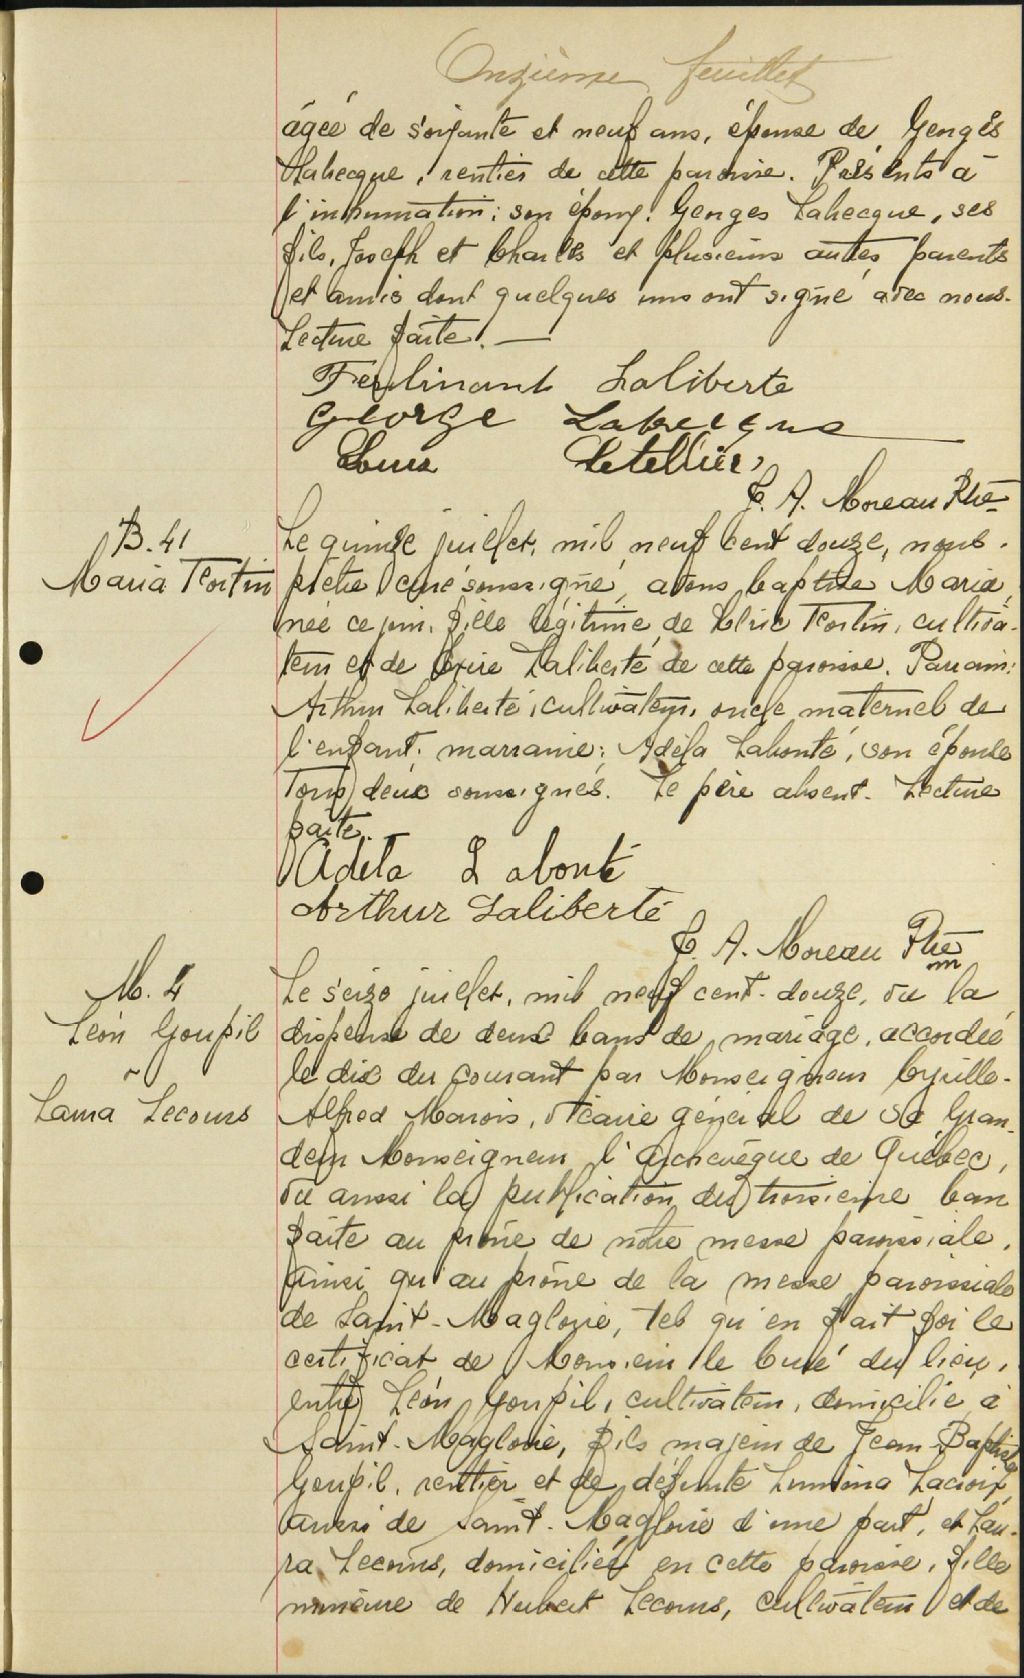 Onzième feuillet
âgée de soixante et neuf ans, épouse de Georges
Labecque, rentier de cette paroisse. Présents à
l'inhumation: son époux Georges Labecque, ses
fils, Joseph et Charles et plusieurs autres parents
et amis dont quelques uns ont signé avec nous.
Lecture faite. —
Ferdinand Laliberte
George Labrecque
Letellier,
J. A. Moreau Ptre
B. 41
Maria Fortin
Le quinze juillet, mil neuf cent douze, nous,
prêtre curé soussigné, avons baptisé Maria,
née ce jour, fille légitime de Ulric Fortin, cultiva-
teur et de Laliberté de cette paroisse. Parrain:
Arthur Laliberté, cultivateur, oncle maternel de
l'enfant, marraine: Adéla Labonté, son épouse
Tous deux soussignés. Le père absent. Lecture
faite.
Adéla Labonté
Arthur Laliberté
J. A. Moreau Ptre
M. 4
Léon Goupil
&
Laura Lecours
Le seize juillet, mil neuf cent-douze, vu la
dispense de deux bans de mariage, accordée
le dix du courant par Monseigneur Cyrille-
Alfred Marois, vicaire général de Sa Gran-
deur Monseigneur l'Archevêque de Québec,
vu aussi la publication du troisième ban
faite au prône de notre messe paroissiale,
ainsi qu'au prône de la messe paroissiale
de Saint-Magloire, tel qu'en fait foi le
certificat de Monsieur le Curé du lieu,
entre Léon Goupil, cultivateur, domicilié à
Saint-Magloire, fils majeur de Jean-Baptiste
Goupil, rentier et de défunte Lumina Lacroix,
aussi de Saint-Magloire d'une part, et Lau-
ra Lecours, domiciliée en cette paroisse, fille
mineure de Hubert Lecours, cultivateur et de